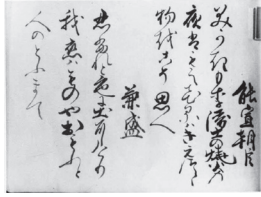 能宣朝臣
みかきもり衛士の焼火の
夜はもえひるはきえつゝ
物をこそ思へ
兼盛
忍れと色に出にけり
我恋はものや思ふと
人のとふまて